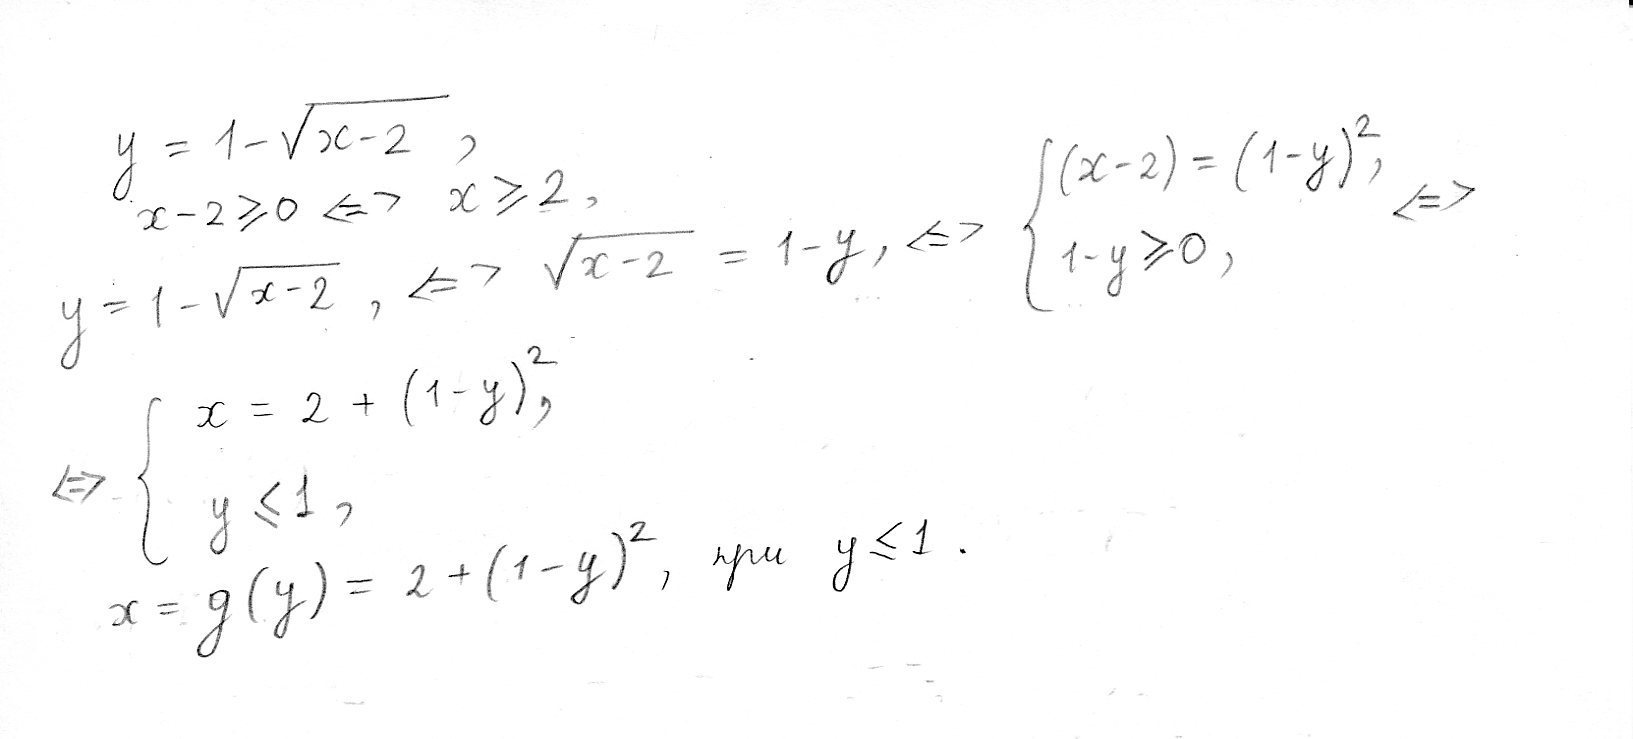 y = 1-√(x-2) ,
x-2⩾0 <=> x⩾2,
y = 1-√(x-2) , <=> √(x-2) = 1-y, <=> { (x-2) = (1-y)², 1-y⩾0, <=>
<=> { x = 2 + (1-y)², y⩽1,
x = g(y) = 2+(1-y)², при y⩽1.